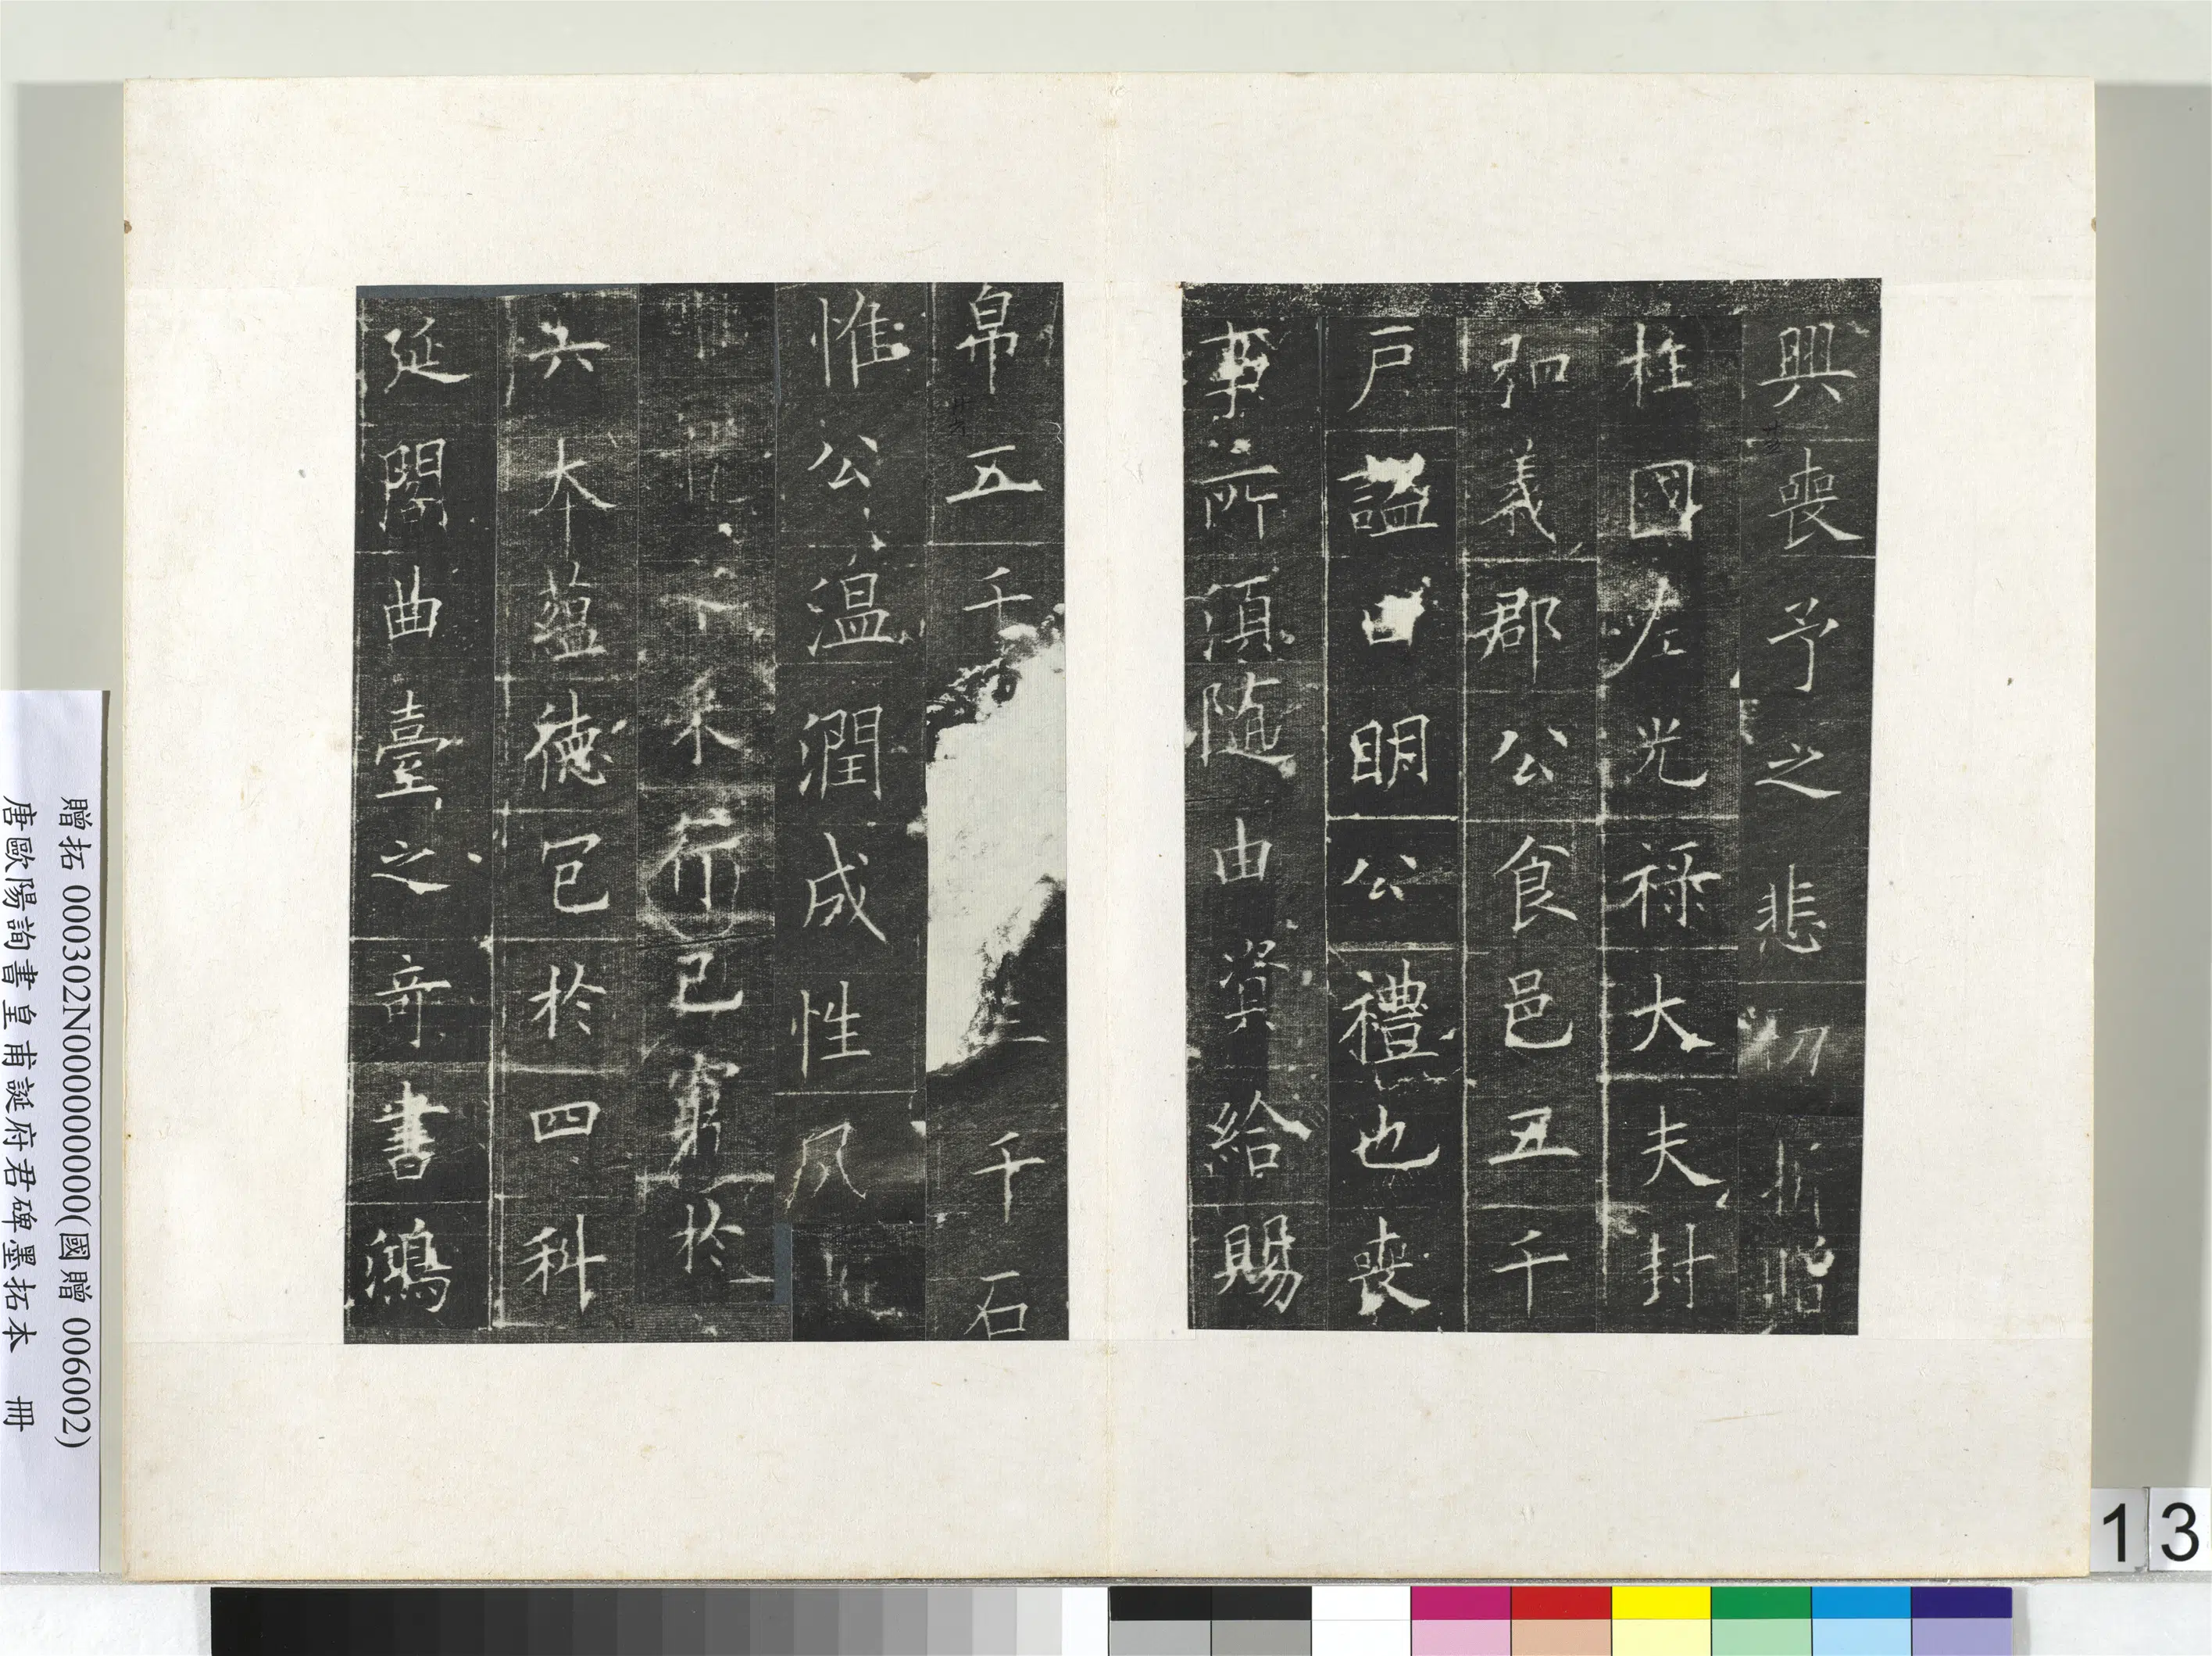 興喪予之悲切折
柱國左光祿大夫封
弘義郡公食邑五千
戶謚曰明公禮也喪
事所須隨由資給賜
帛五千三千石
惟公溫潤成性夙
下末行已窮於
六本蘊德包於四科
延閣曲臺之奇書鴻
贈拓 000302N000000000(國贈 006002)
唐歐陽詢書皇甫誕府君碑墨拓本 冊
13